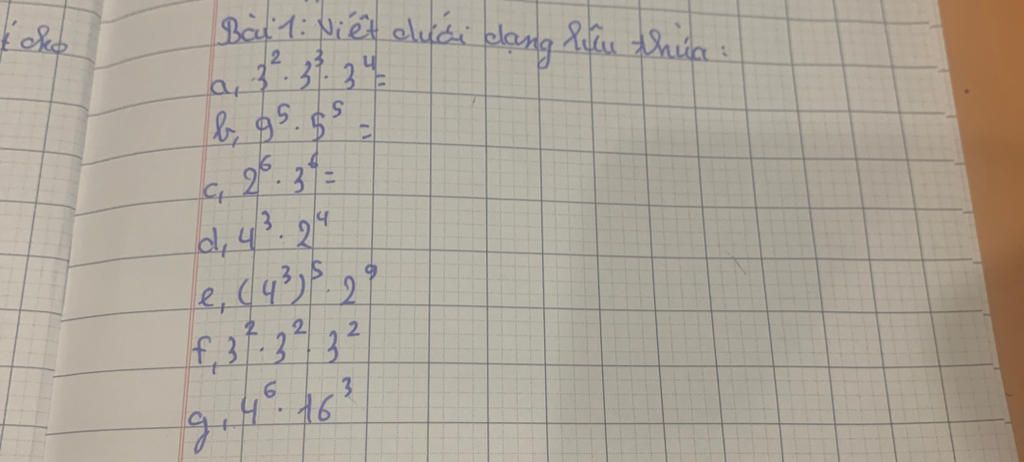 Bài 1: Viết dưới dạng lũy thừa:
a, 3² · 3³ · 3⁴ =
b, 9⁵ · 5⁵ =
c, 2⁶ · 3⁶ =
d, 4³ · 2⁴
e, (4³)⁵ · 2⁹
f, 3² · 3² · 3²
g, 4⁶ · 16³